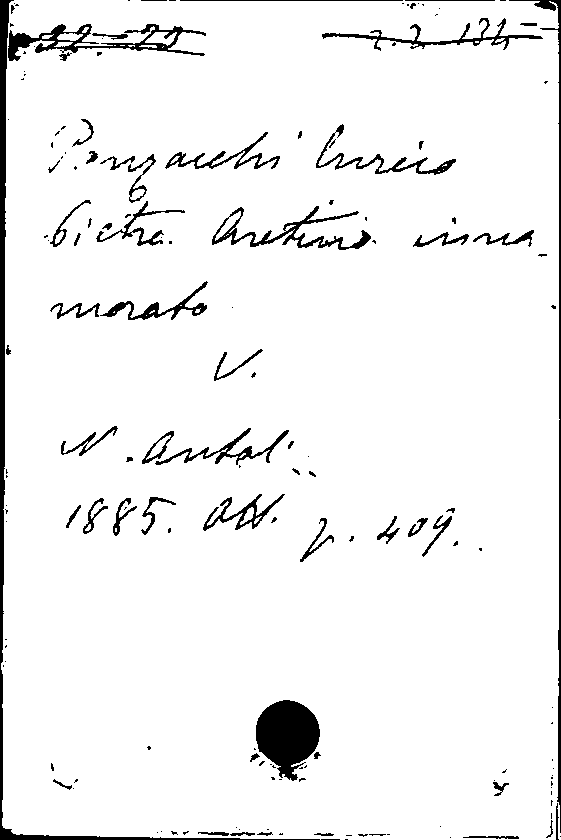 32.-23 2.2 134
Panzacchi Enrico
Pietro Aretino inna-
morato
V.
N. Antol.
1885. Ott. p. 409.